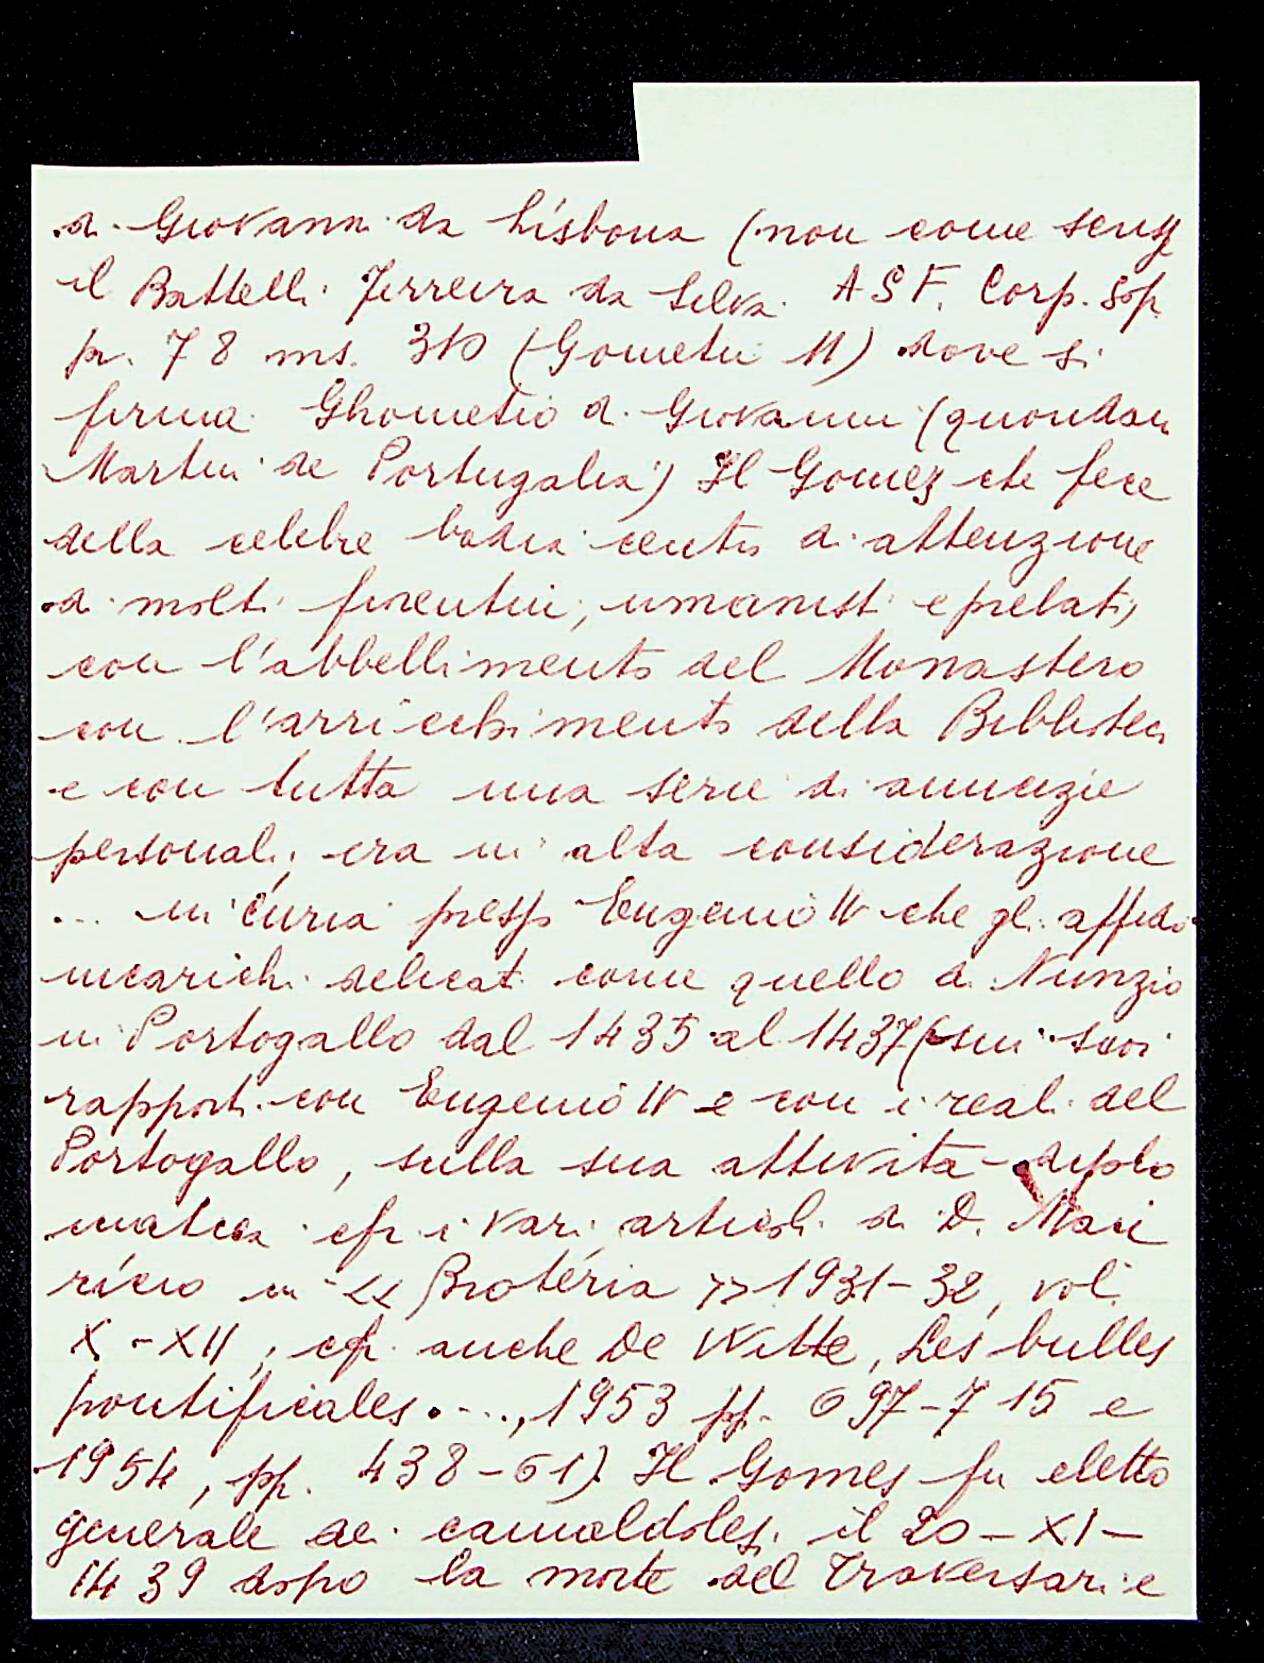 di Giovanni da Lisbona (non come
il Battelli Ferreira da Silva. ASF. Corp. Sop.
pr. 78 ms. 310 (Gometii 11) dove si
firma Ghometio di Giovanni (quondam
Martini de Portugalia) Il Gomez che fece
della celebre badia centro di attenzione
di molti fiorentini, umanisti e prelati,
con l'abbellimento del Monastero
con l'arricchimento della Biblioteca
e con tutta una serie di amicizie
personali, era in alta considerazione
... in curia presso Eugenio IV che gli affidò
incarichi delicati come quello di Nunzio
in Portogallo dal 1435 al 1437 (sui suoi
rapporti con Eugenio IV e con i reali del
Portogallo, sulla sua attività diplo
matica cfr i vari articoli di D. Mau
rício in << Brotéria >> 1931-32, vol.
X-XII; cfr. anche De Witte, Les bulles
pontificales...., 1953 pp. 697-715 e
1954, pp. 438-61) Il Gomes fu eletto
generale dei camaldolesi il 20-XI-
1439 dopo la morte del Traversari e